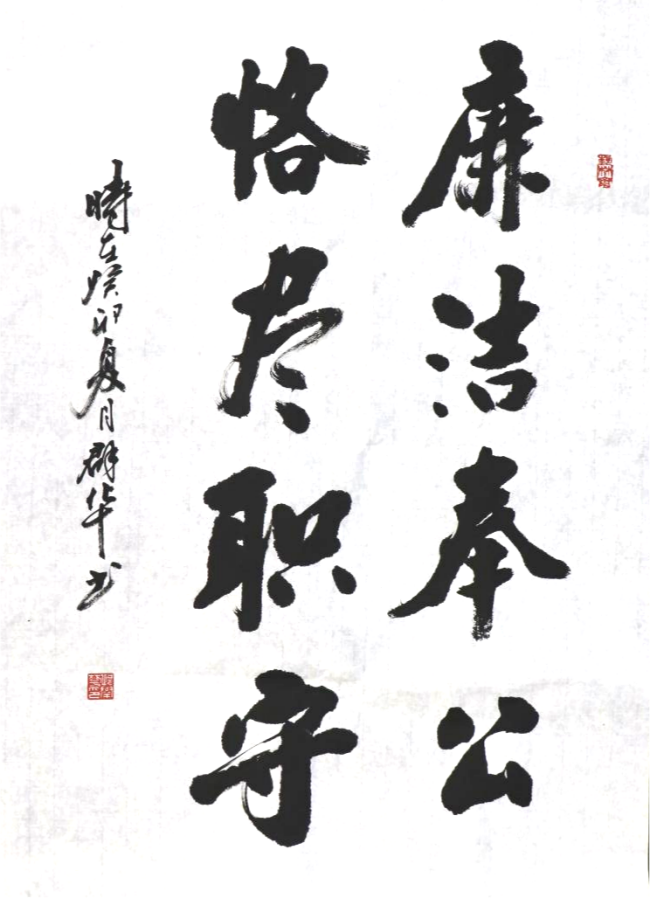 廉洁奉公
恪尽职守
時在癸卯夏月群华书